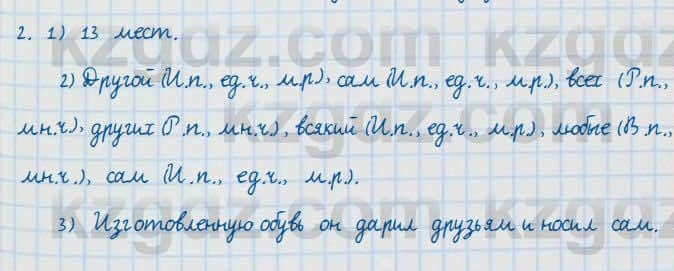 2. 1) 13 мест.
2) Другой (И.п., ед.ч., м.р.), сам (И.п., ед.ч., м.р.), всех (Р.п.,
мн.ч.), других (Р.п., мн.ч.), всякий (И.п., ед.ч., м.р.), любые (В.п.,
мн.ч.), сам (И.п., ед.ч., м.р.).
3) Изготовленную обувь он дарил друзьям и носил сам.